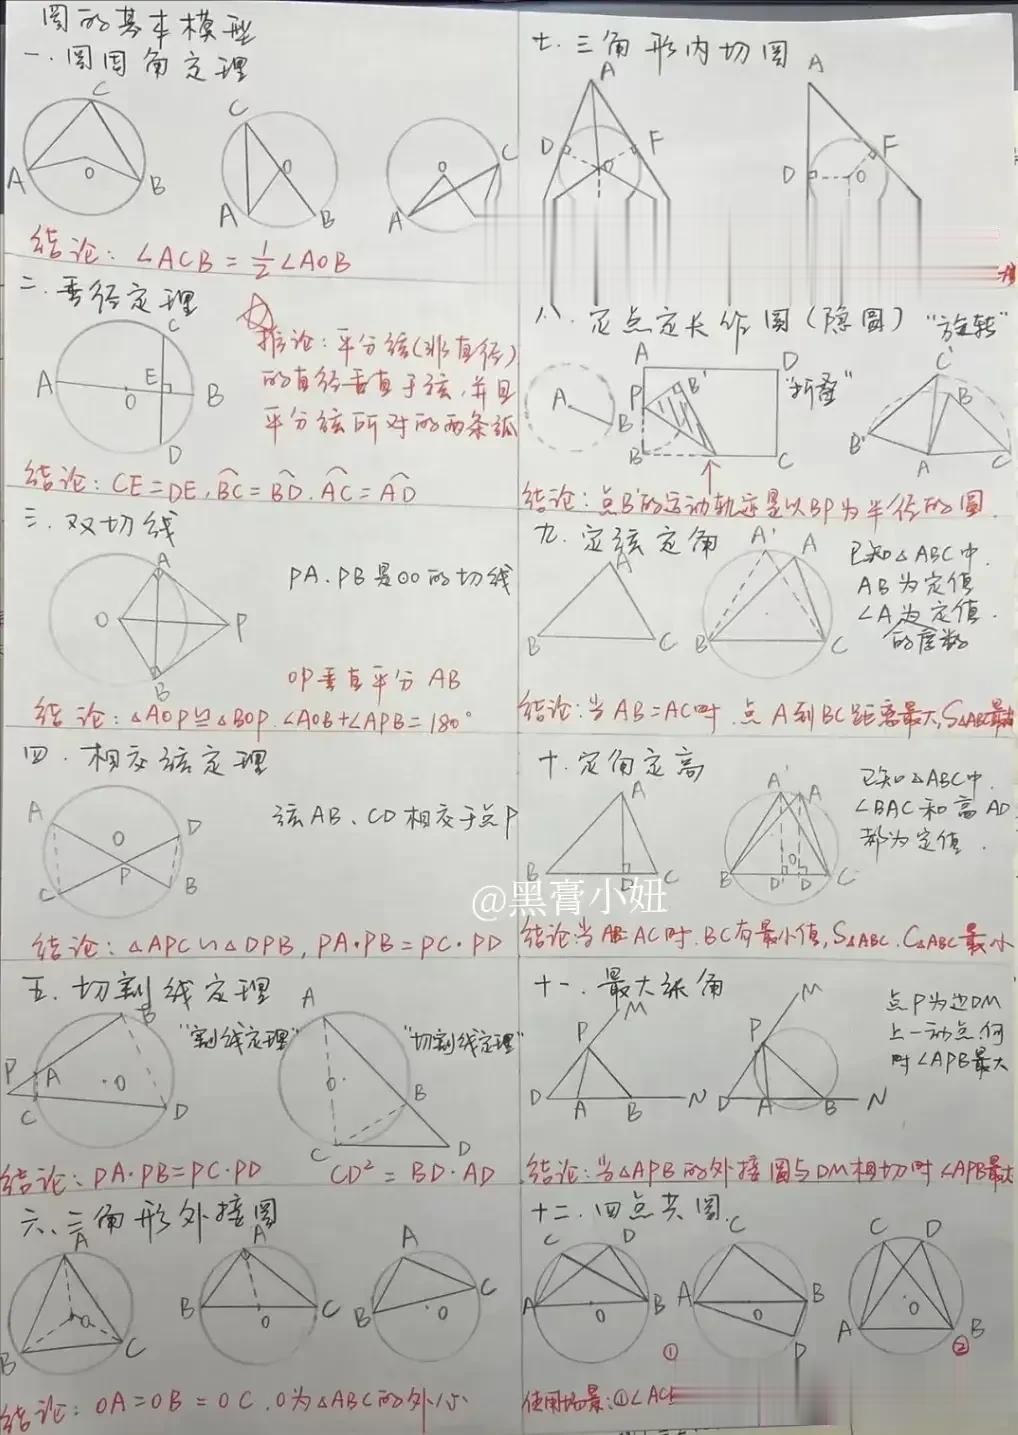 圆的基本模型
一.圆周角定理
C
O
A
B
C
O
A
B
O
C
A
结论: ∠ACB = 1/2 ∠AOB
二.垂径定理
C
A
E
O
B
D
推论:平分弦(非直径)
的直径垂直于弦,并且
平分弦所对的两条弧
结论: CE=DE, BC⌒=BD⌒, AC⌒=AD⌒
三.双切线
A
O
P
B
PA.PB是⊙O的切线
OP垂直平分AB
结论:△AOP≌△BOP.∠AOB+∠APB=180°
四.相交弦定理
A
O
D
P
C
B
弦AB、CD相交于点P
结论:△APC∽△DPB, PA·PB=PC·PD
五.切割线定理
B
"割线定理"
P
A
O
C
D
A
"切割线定理"
O
B
C
D
结论: PA·PB=PC·PD
CD²=BD·AD
六、三角形外接圆
A
O
B
C
A
B
O
C
A
B
O
C
结论: OA=OB=OC.O为△ABC的外心
七.三角形内切圆
A
D
O
F
A
D
O
F
八.定点定长作圆(隐圆)
"旋转"
A
B
A
D
P
B'
"折叠"
B
C
C'
B
B'
A
C
结论:点B'的运动轨迹是以BP为半径的圆.
九.定弦定角
A
B
C
A'
A
B
C
已知△ABC中.
AB为定值
∠A为定值.
的度数
结论:当AB=AC时.点A到BC距离最大,S△ABC最大
十.定角定高
A
B
D
C
A'
A
B
D'
O
D
C
已知△ABC中.
∠BAC和高AD
都为定值.
@黑膏小妞
结论:当AB=AC时.BC有最小值,S△ABC.C△ABC最小
十一.最大张角
M
P
D
A
B
N
M
P
D
A
B
N
点P为边DM
上一动点.何
时∠APB最大
结论:当△APB的外接圆与DM相切时∠APB最大
十二.四点共圆
C
D
A
O
B
C
A
O
B
D
①
C
D
O
A
B
②
使用场景:①∠AC